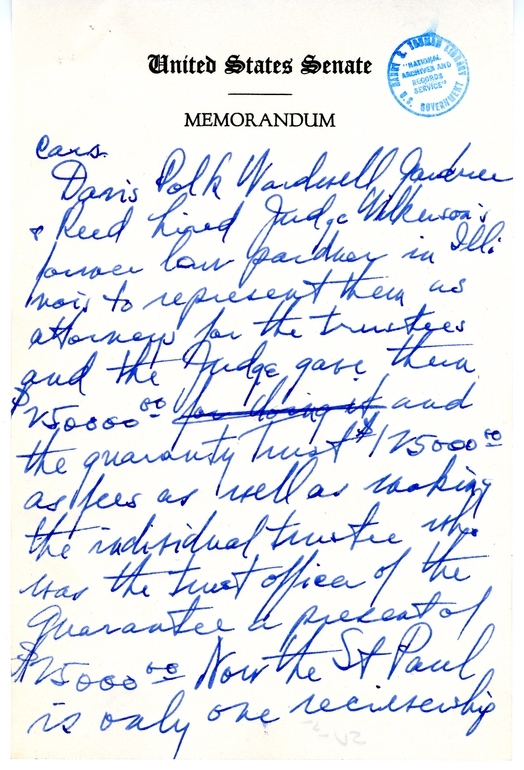 United States Senate
MEMORANDUM
HARRY S. TRUMAN LIBRARY
"NATIONAL
ARCHIVES AND
RECORDS
SERVICE"
U.S. GOVERNMENT
cars.
Davis Polk Wardwell Gardner
& Reed hired Judge Wilkerson's
former law pardner in Illi
nois to represent them as
attorneys for the trustees
and the Judge gave them
$250000.00 for doing it and
the guaranty trust $125000.00
as fees as well as making
the individual trustee who
was the trust officer of the
Guarantee a present of
$25000.00 Now the St Paul
is only one recievership